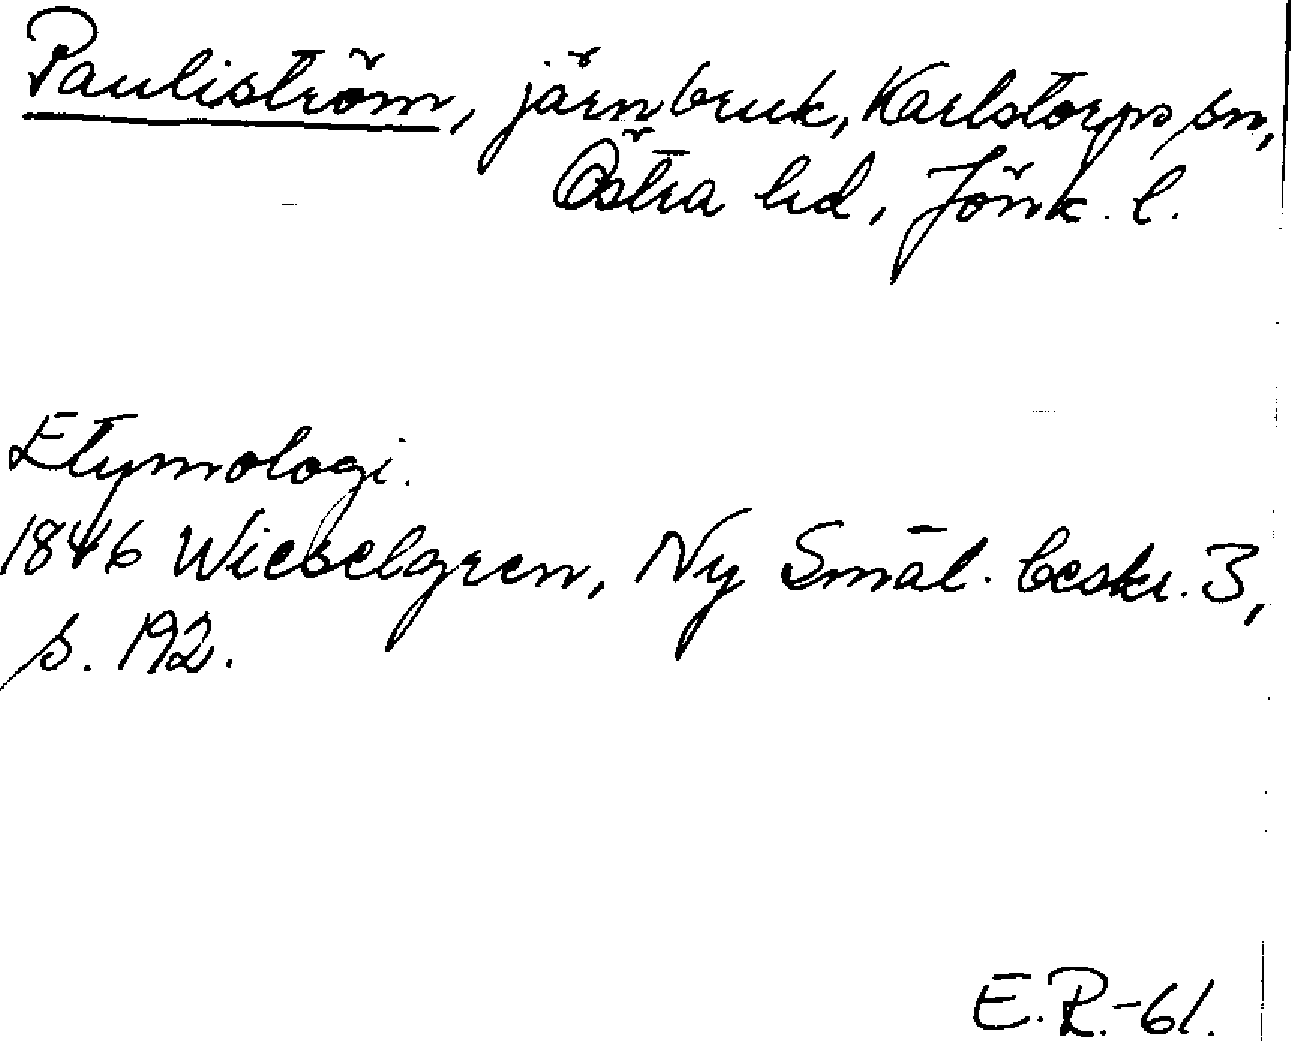 Pauliström, järnbruk, Karlstorps sn,
Östra hd, Jönk. l.
Etymologi.
1846 Wieselgren, Ny Smål. beskr. 3,
s. 192.
E.R.-61.